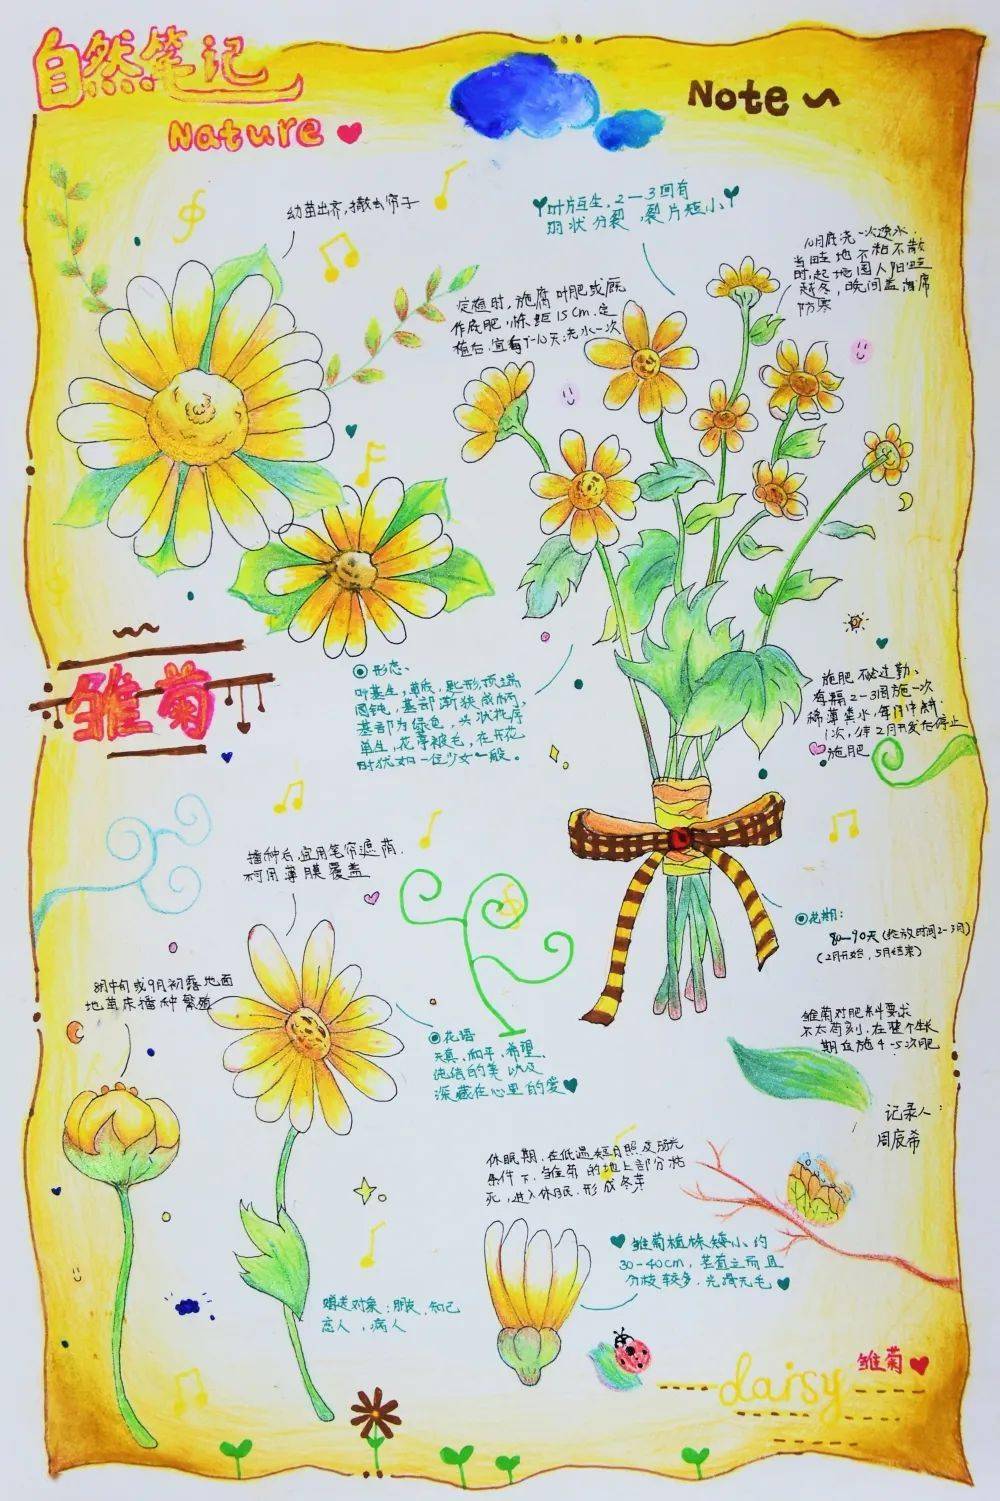 自然笔记
Nature
Note
幼苗出齐,撤去帘子
叶片互生,2—3回有
羽状分裂,裂片短小
10月底浇一次透水.
当畦地不粘不散
时,起地囤入阳畦
越冬,晚间盖薄席
防寒
定植时,施腐叶肥或厩
作底肥,株距15cm.定
植后,宜每7-10天浇水一次
雏菊
形态、
叶基生,草质,匙形,顶端
圆钝,基部渐狭成柄,
基部为绿色,头状花序
单生,花葶被毛,在开花
时犹如一位少女一般。
施肥不必过勤、
每隔2-3周施一次
稀薄粪水,每月中耕
1次,
2月开发后停止
施肥
播种后,宜用苇帘遮荫.
不可用薄膜覆盖
花期:
80—90天(抢放时间2-3月)
(2月开始,5月结束)
8月中旬或9月初露地面
地苗床播种繁殖
雏菊对肥料要求
不太苛刻,在整个生长
期应施4-5次肥
花语
天真,和平,希望
纯洁的美以及
深藏在心里的爱
记录人:
周辰希
休眠期,在低温短日照及弱光
条件下,雏菊的地上部分枯
死,进入休眠,形成冬芽
雏菊植株矮小,约
30-40cm,茎直立而且
分枝较多,光滑无毛
赠送对象:朋友,知己
恋人,病人
雏菊
daisy